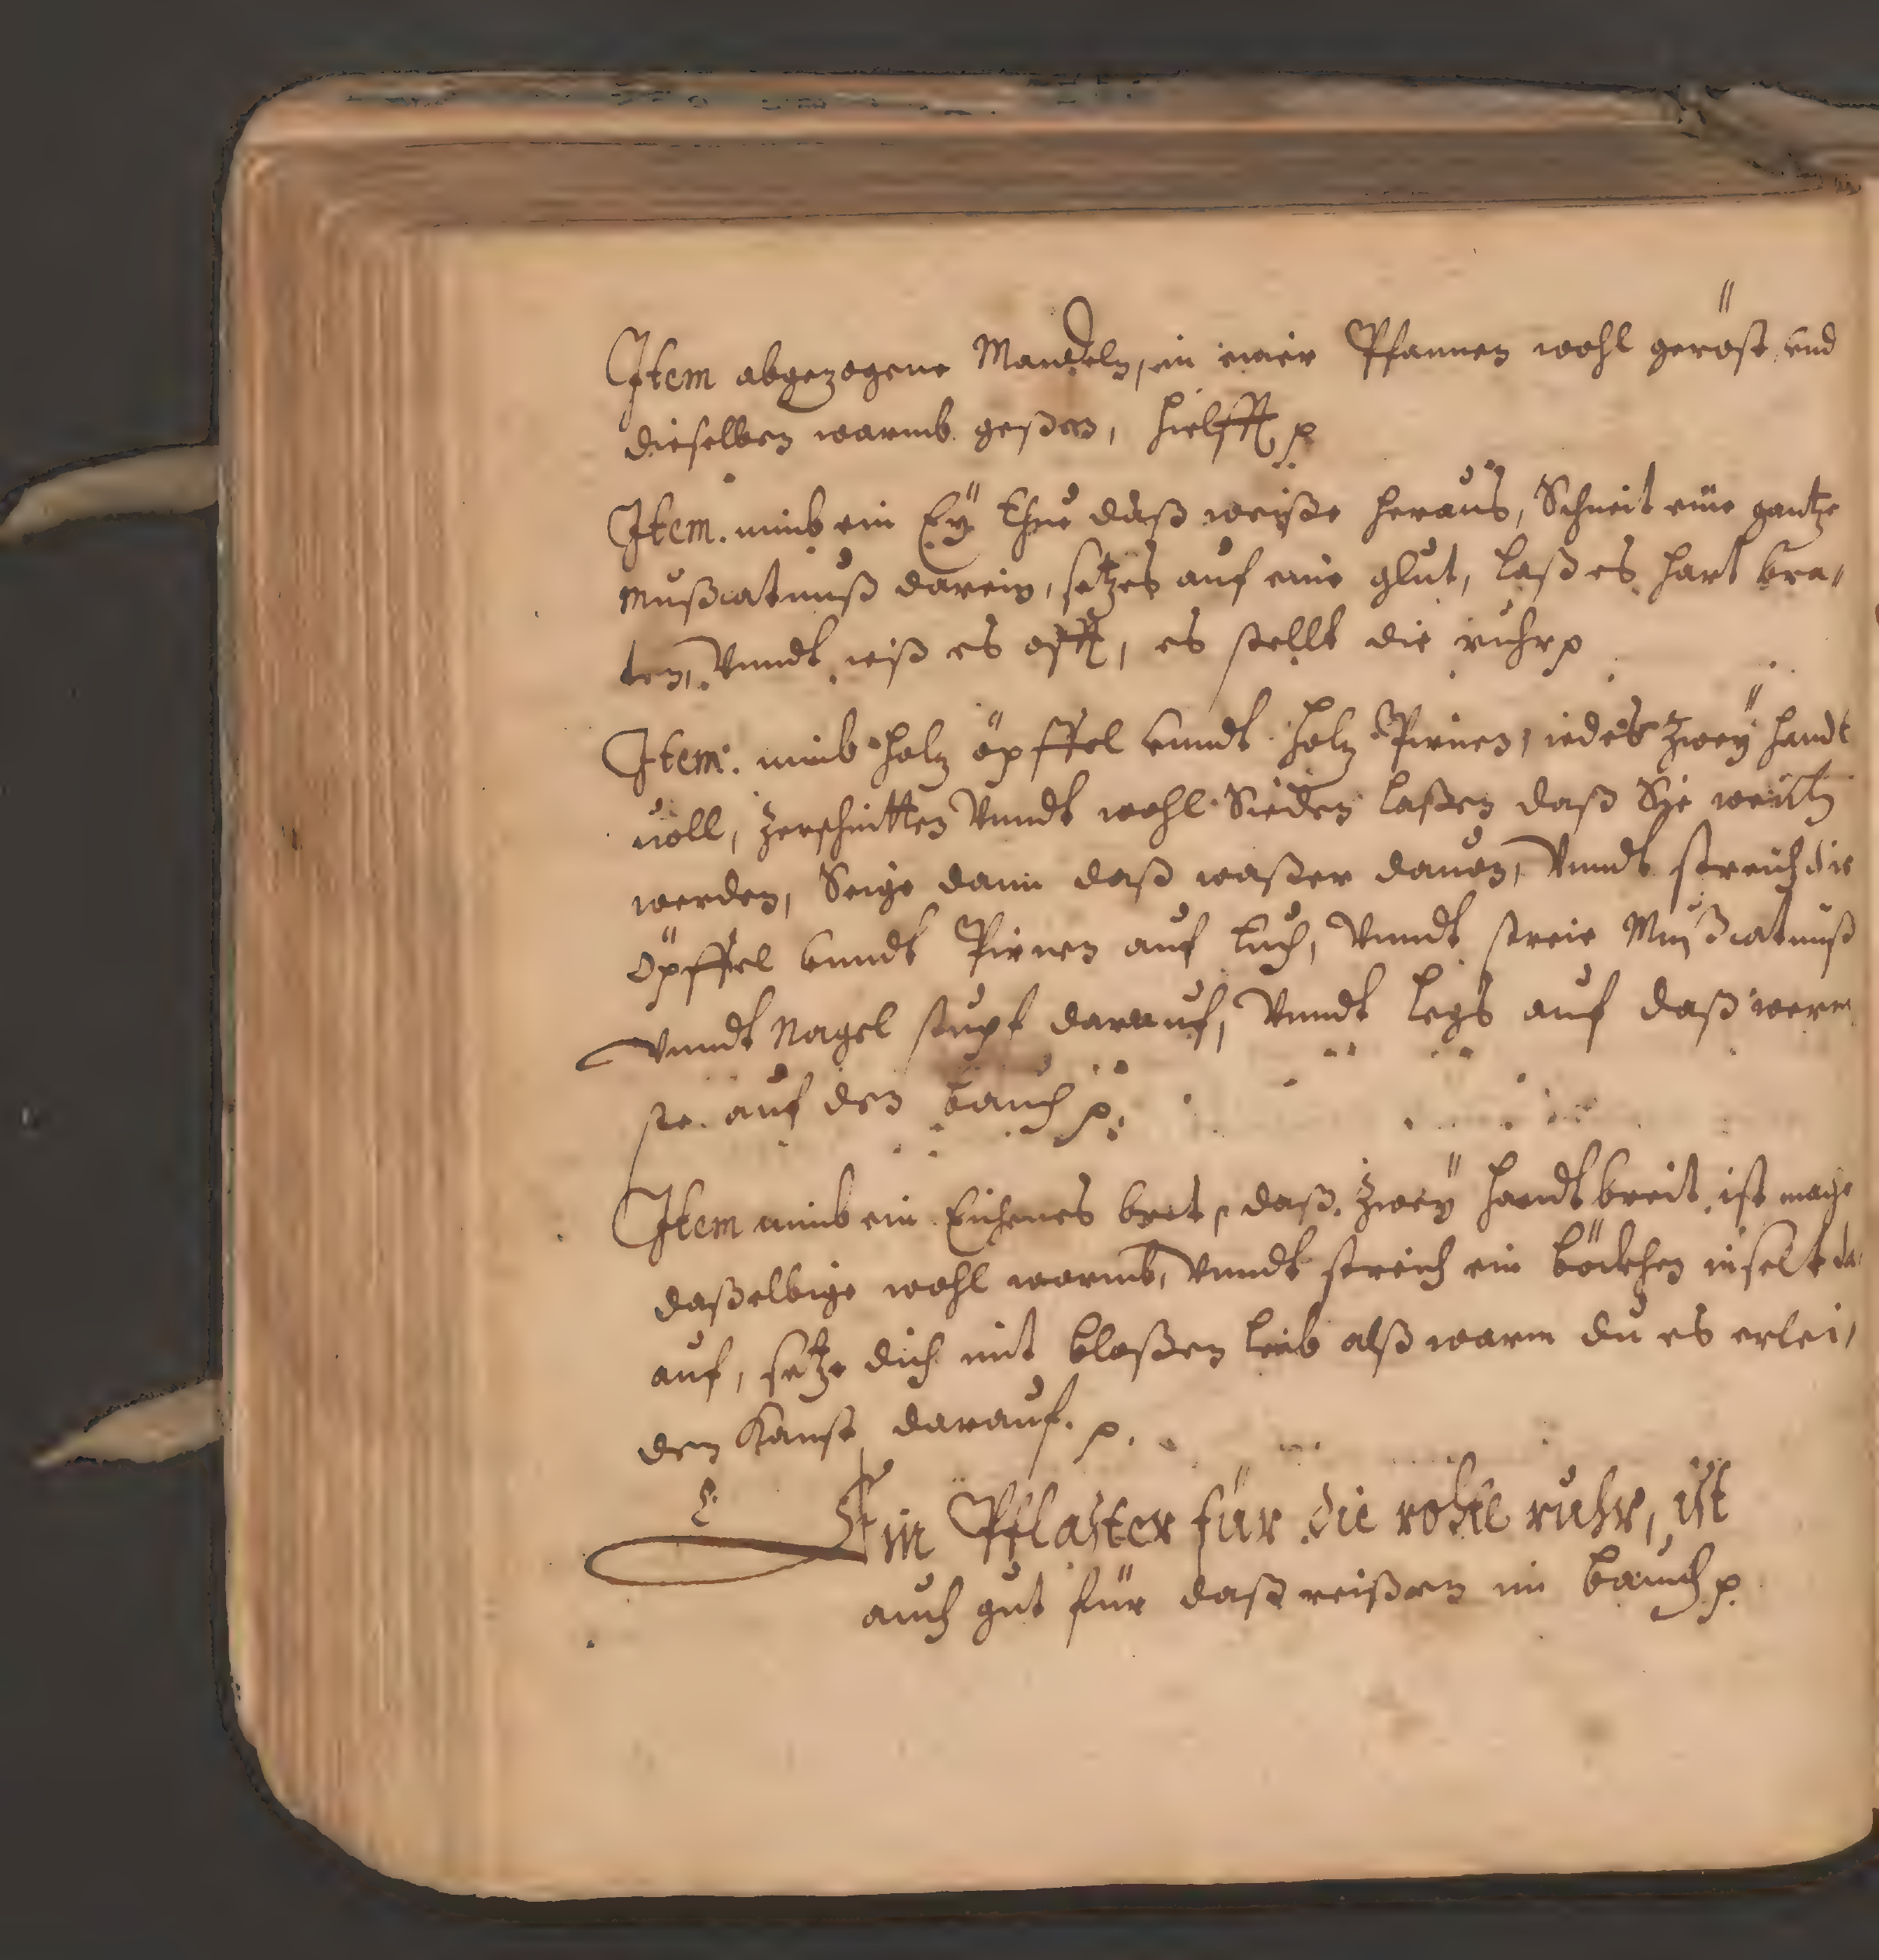 Item abgezogene Mandeln, in einer Pfannen wohl geröst, und
dieselben warmb geßen, hielfft p
Item. nimb ein Eÿ thue daß weiße heraus, Schneit eine gantze
mußcatnuß darein, setzes auf eine glut, laß es hart bra,
ten, Vnndt iß es offt, es stellt die ruhr p
Item: nimb holz öpffel vnndt holz Pirnen, iedes zweÿ handt
uoll, zerschnitten Vnndt wohl Sieden laßen daß Sie weich
werden, Seige dann daß waßer dauon, Vnndt streich die
öpffel vnndt Pirnen auf tuch, Vnndt streie Mußcatnuß
Vnndt Nagel stupf darauf, Vnndt legs auf daß werm
ste auf den bauch p.
Item nimb ein Eichenes bret, daß zweÿ handt breit ist mache
daßelbige wohl warmb, Vnndt streich ein böckhen inselt da
auf, setze dich mit bloßen leib alß warm du es erlei,
den kanst darauf. p.
Ein Pflaster für die rohte ruhr, ist
auch gut für daß reißen im bauch p.